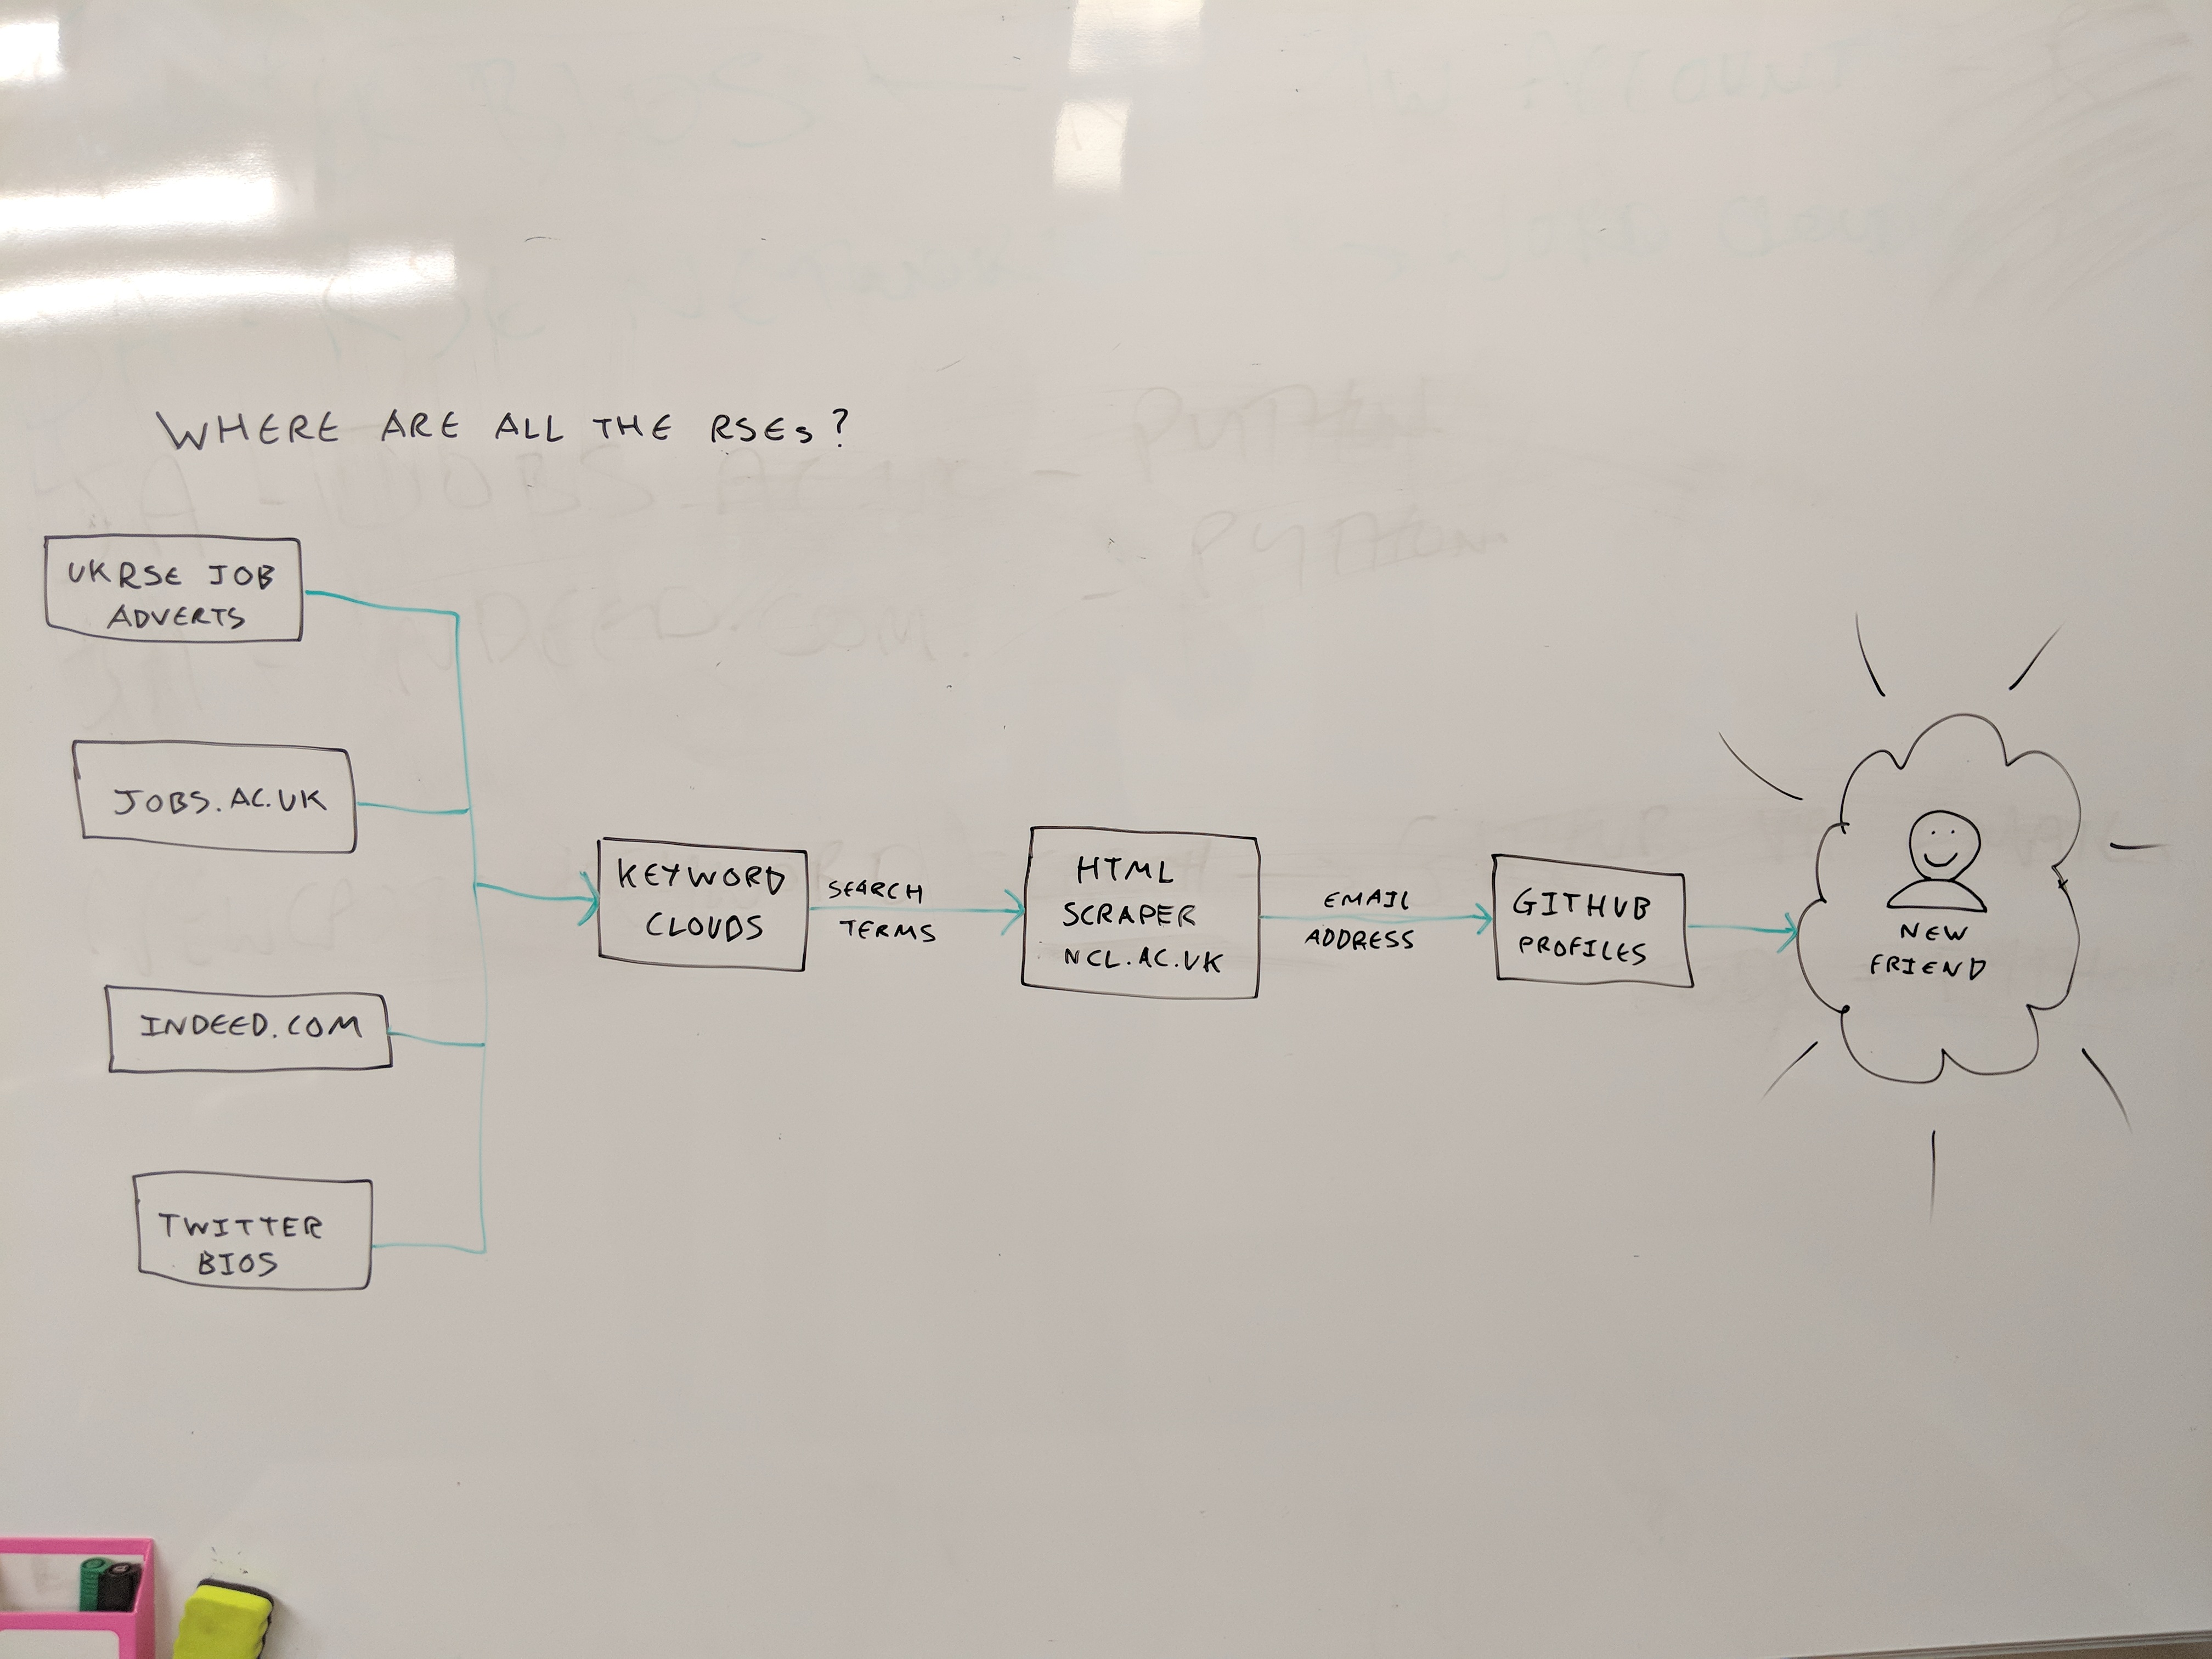 WHERE ARE ALL THE RSEs?
UKRSE JOB
ADVERTS
JOBS.AC.UK
INDEED.COM
TWITTER
BIOS
KEYWORD
CLOUDS
SEARCH
TERMS
HTML
SCRAPER
NCL.AC.UK
EMAIL
ADDRESS
GITHUB
PROFILES
NEW
FRIEND